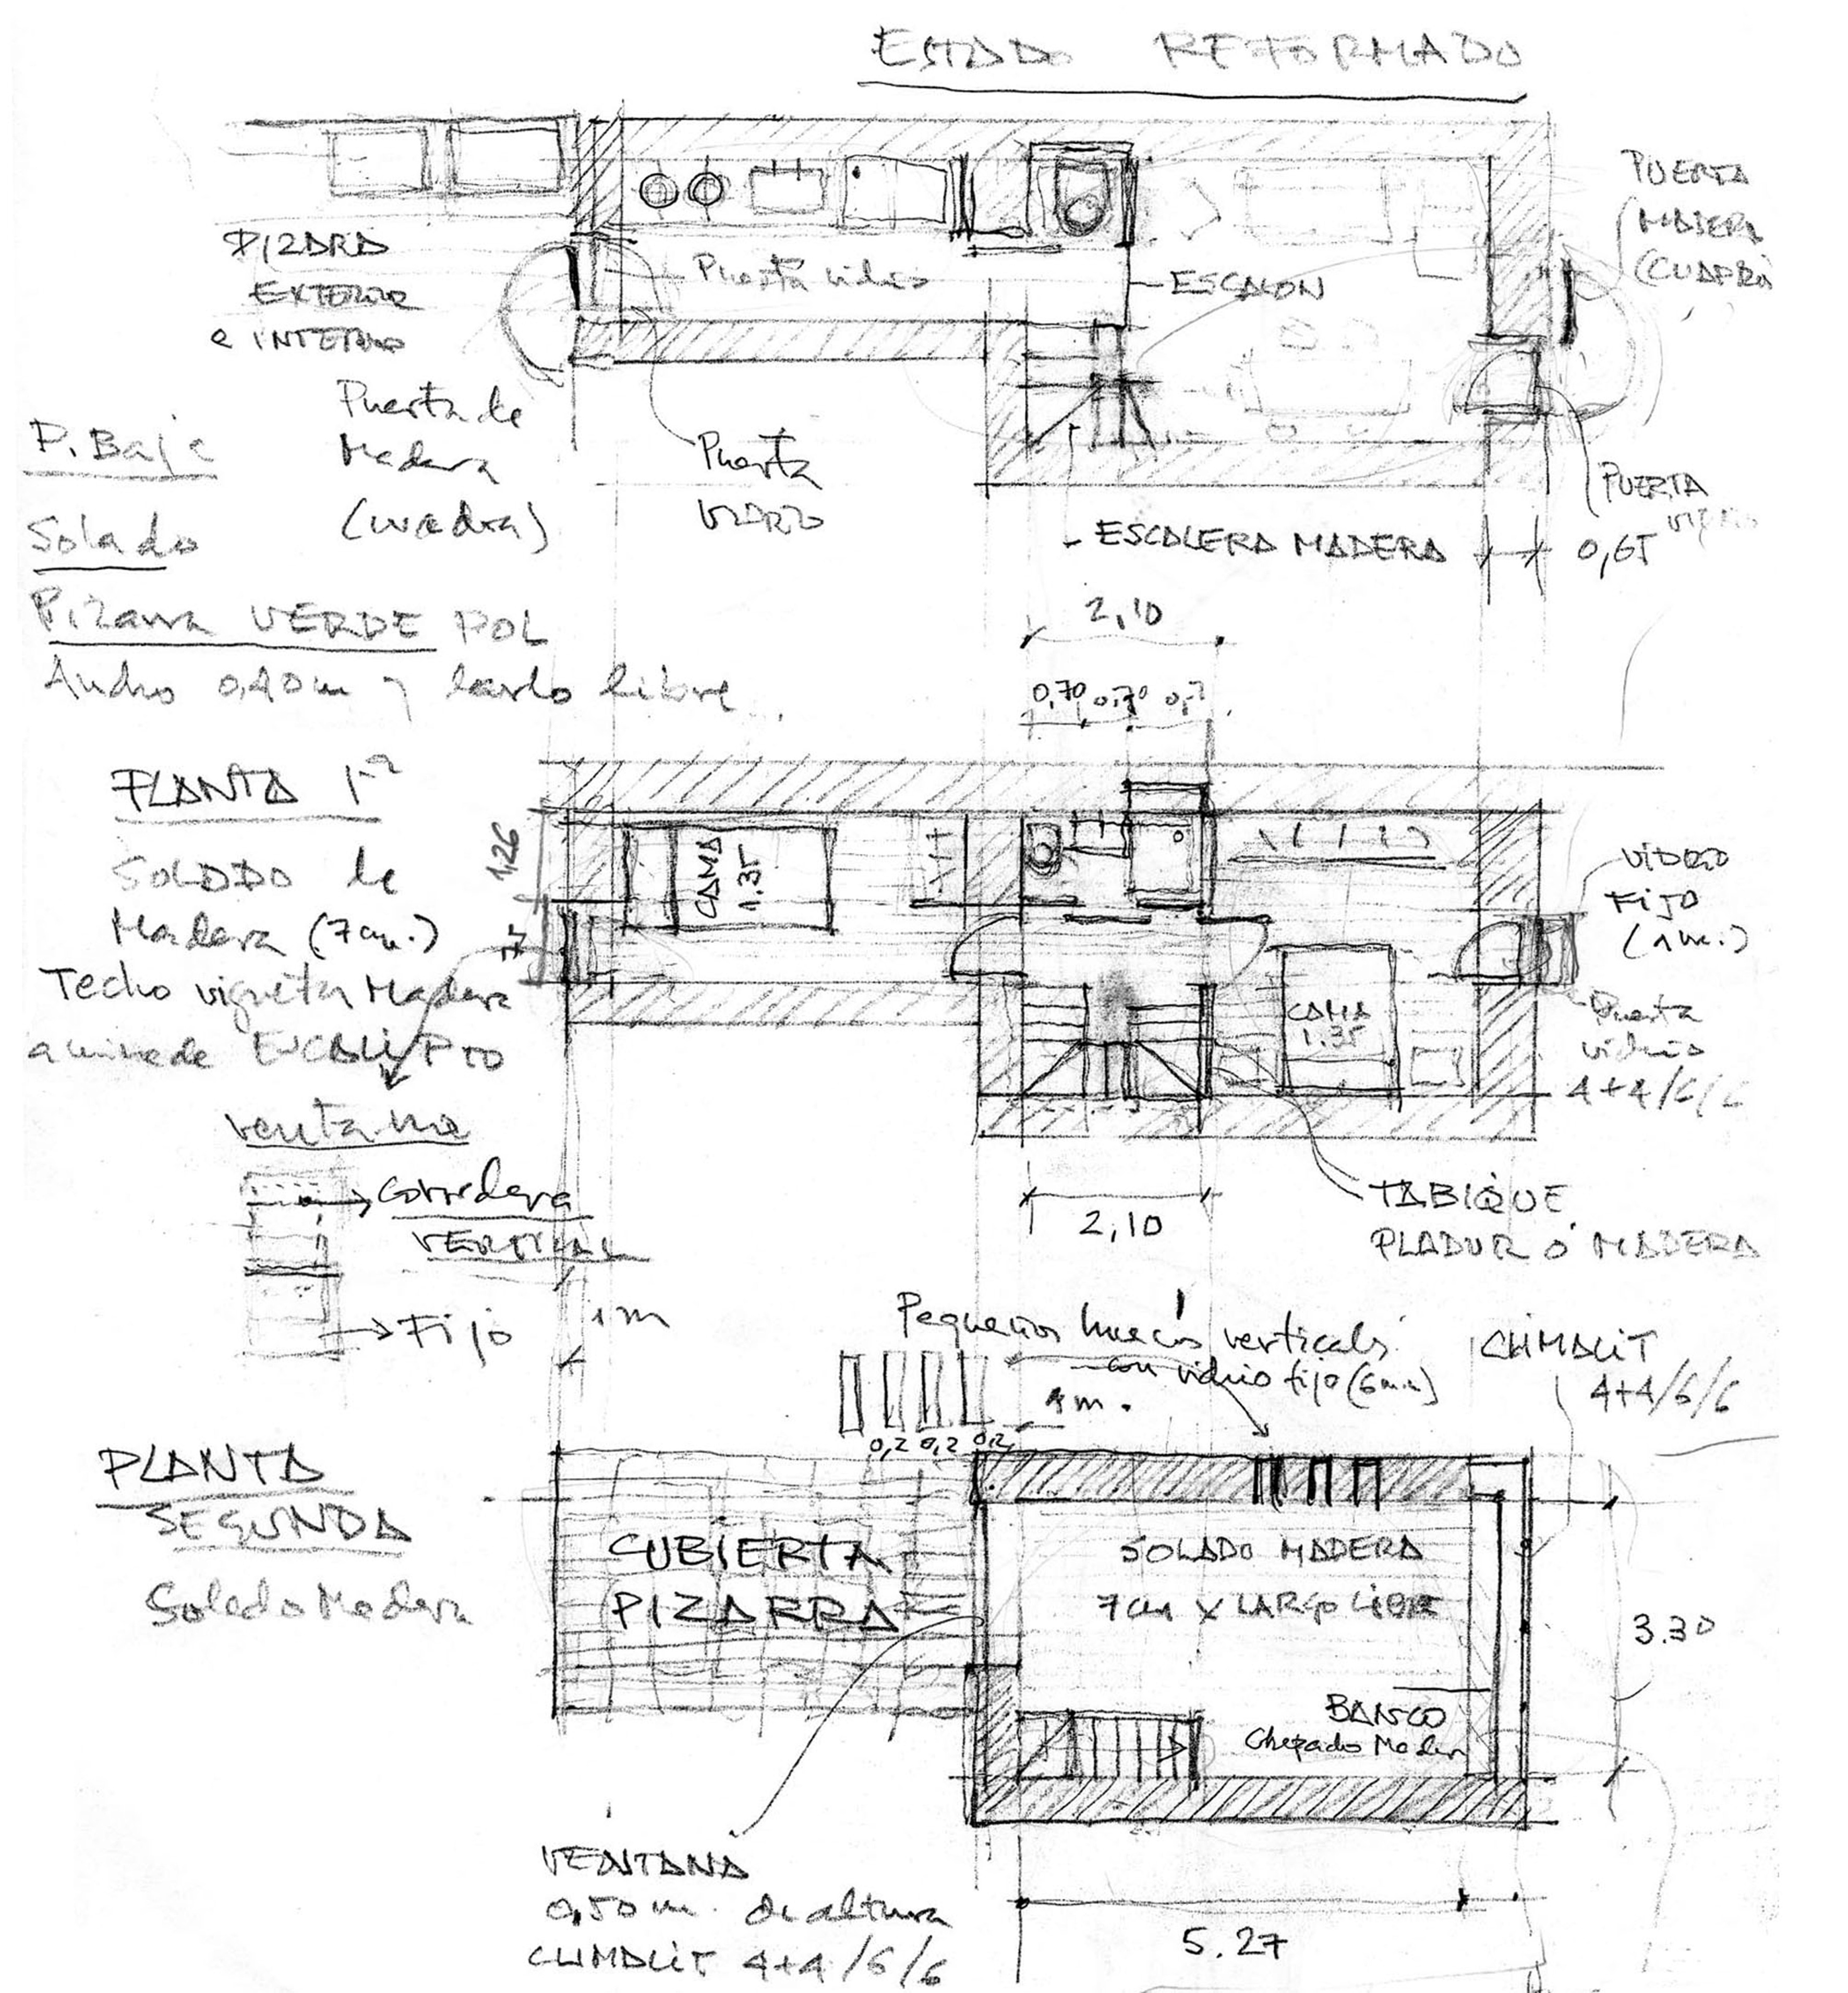 ESTADO REFORMADO
PUERTA
MADERA
PIZARA
EXTERIOR
e INTERIOR
Puerta vidrio
ESCALON
Puerta de
Madera
(cuadra)
P. Baja
Puerta
VIDRIO
PUERTA
vidrio
Solado
ESCALERA MADERA
0,65
Pizarra VERDE POL
2,10
Ancho 0,40m y largo libre
0,70 0,70 0,7
PLANTA 1ª
1.26
SOLADO de
Madera (7cm.)
CAMA
1.35
VIDRIO
FIJO
Techo viguetas Madera
EUCALIPTO
CAMA
1.35
Puerta
vidrio
4+4/6/6
ventana
Corredera
VERTICAL
Fijo
2,10
TABIQUE
PLADUR Ó MADERA
1m
Pequeños huecos verticals
con vidrio fijo (6mm)
CLIMALIT
4+4/6/6
1m.
0,2 0,2 0,2
PLANTA
SEGUNDA
Solado Madera
CUBIERTA
PIZARRA
SOLADO MADERA
7cm X LARGO LIBRE
3.30
BANCO
Chapado Mader
VENTANA
0,50m. de altura
CLIMALIT 4+4/6/6
5.27